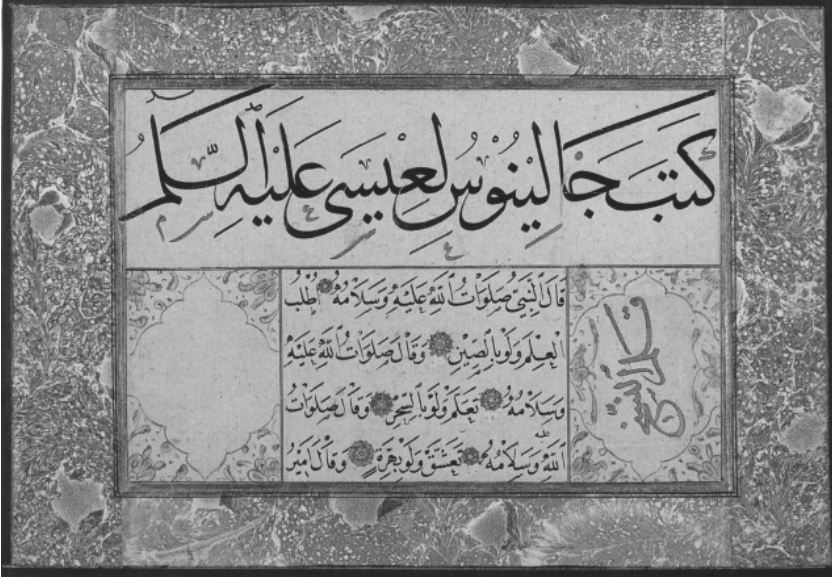 كَتَبَ جَالِينُوسُ لِعِيسَى عَلَيْهِ السَّلَم
قَالَ النَّبِيُّ صَلَوَاتُ اللهِ عَلَيْهِ وَسَلَامُهُ اُطْلُبُ
الْعِلْمَ وَلَوْ بِالصِّينِ وَقَالَ صَلَوَاتُ اللهِ عَلَيْهِ
وَسَلَامُهُ تَعَلَّمْ وَلَوْ بِالسِّحْرِ وَقَالَ صَلَوَاتُ
اللهِ عليه وَسَلَامُهُ تَعَشَّقْ وَلَوْ بِهِرَّةٍ وَقَالَ اَمِيرُ